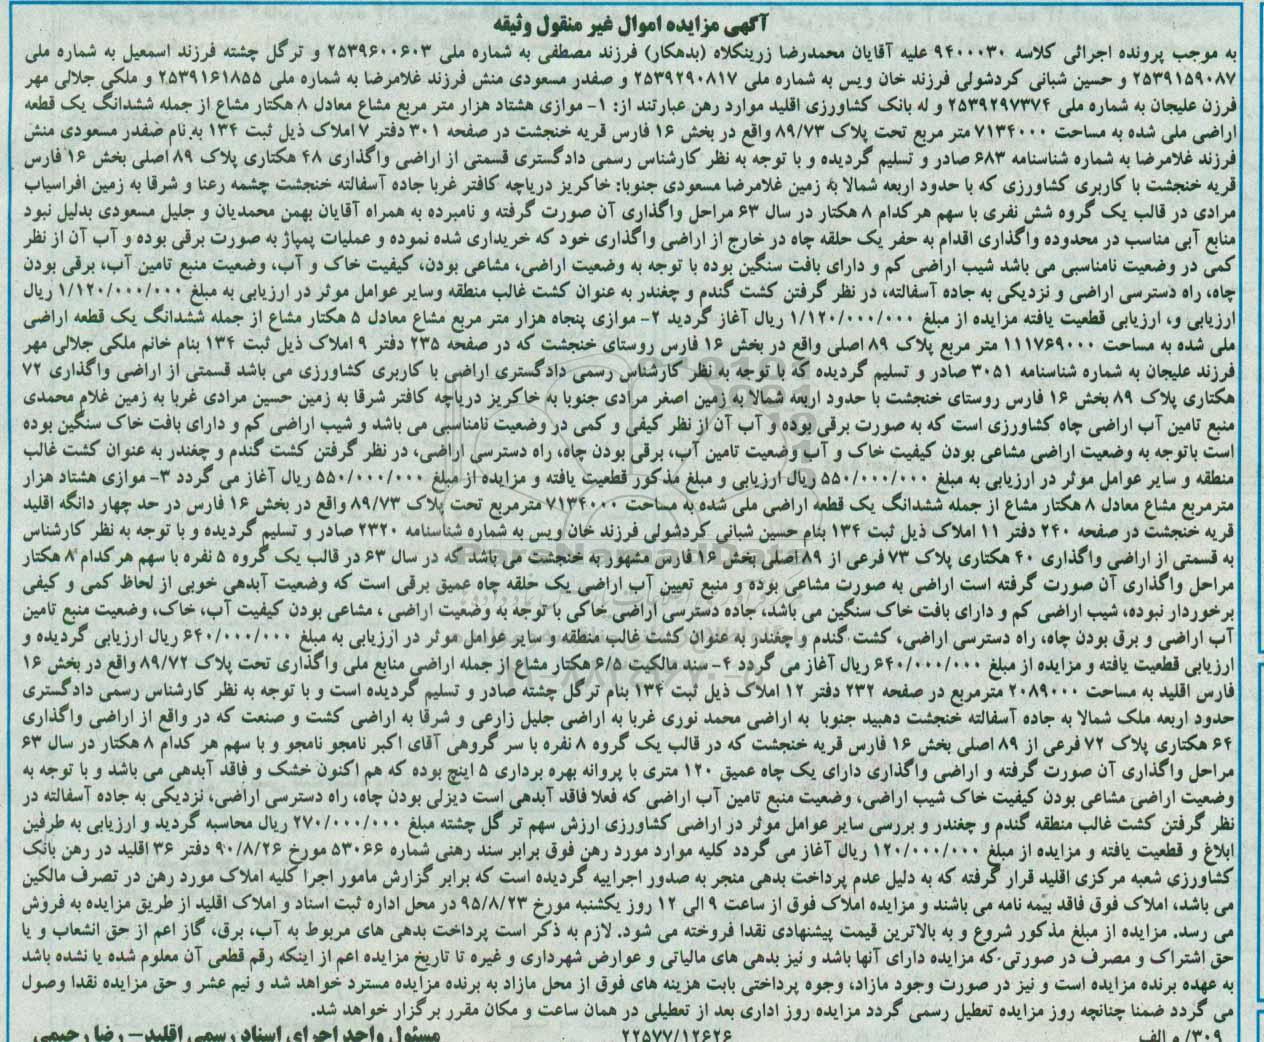 آگهی مزایده اموال غیر منقول وثیقه
به موجب پرونده اجرائی کلاسه ۹۴۰۰۰۳۰ علیه آقایان محمدرضا زرینکلاه (بدهکار) فرزند مصطفی به شماره ملی ۲۵۳۹۶۰۰۶۰۳ و ترگل چشته فرزند اسمعیل به شماره ملی
۲۵۳۹۱۵۹۰۸۷ و حسین شبانی کردشولی فرزند خان ویس به شماره ملی ۲۵۳۹۲۹۰۸۱۷ و صفدر مسعودی منش فرزند غلامرضا به شماره ملی ۲۵۳۹۱۶۱۸۵۵ و ملکی جلالی مهر
فرزن علیجان به شماره ملی ۲۵۳۹۲۹۷۳۷۴ و له بانک کشاورزی اقلید موارد رهن عبارتند از: ۱- موازی هشتاد هزار متر مربع مشاع معادل ۸ هکتار مشاع از جمله ششدانگ یک قطعه
اراضی ملی شده به مساحت ۷۱۳۴۰۰۰ متر مربع تحت پلاک ۸۹/۷۳ واقع در بخش ۱۶ فارس قریه خنجشت در صفحه ۳۰۱ دفتر ۷ املاک ذیل ثبت ۱۳۴ به نام صفدر مسعودی منش
فرزند غلامرضا به شماره شناسنامه ۶۸۳ صادر و تسلیم گردیده و با توجه به نظر کارشناس رسمی دادگستری قسمتی از اراضی واگذاری ۴۸ هکتاری پلاک ۸۹ اصلی بخش ۱۶ فارس
قریه خنجشت با کاربری کشاورزی که با حدود اربعه شمالا به زمین غلامرضا مسعودی جنوبا: خاکریز دریاچه کافتر غربا جاده آسفالته خنجشت چشمه رعنا و شرقا به زمین افراسیاب
مرادی در قالب یک گروه شش نفری با سهم هرکدام ۸ هکتار در سال ۶۳ مراحل واگذاری آن صورت گرفته و نامبرده به همراه آقایان بهمن محمدیان و جلیل مسعودی بدلیل نبود
منابع آبی مناسب در محدوده واگذاری اقدام به حفر یک حلقه چاه در خارج از اراضی واگذاری خود که خریداری شده نموده و عملیات پمپاژ به صورت برقی بوده و آب آن از نظر
کمی در وضعیت نامناسبی می باشد شیب اراضی کم و دارای بافت سنگین بوده با توجه به وضعیت اراضی، مشاعی بودن، کیفیت خاک و آب، وضعیت منبع تامین آب، برقی بودن
چاه، راه دسترسی اراضی و نزدیکی به جاده آسفالته، در نظر گرفتن کشت گندم و چغندر به عنوان کشت غالب منطقه وسایر عوامل موثر در ارزیابی به مبلغ ۱/۱۲۰/۰۰۰/۰۰۰ ریال
ارزیابی و، ارزیابی قطعیت یافته مزایده از مبلغ ۱/۱۲۰/۰۰۰/۰۰۰ ریال آغاز گردید ۲- موازی پنجاه هزار متر مربع مشاع معادل ۵ هکتار مشاع از جمله ششدانگ یک قطعه اراضی
ملی شده به مساحت ۱۱۱۷۶۹۰۰۰ متر مربع پلاک ۸۹ اصلی واقع در بخش ۱۶ فارس روستای خنجشت که در صفحه ۲۳۵ دفتر ۹ املاک ذیل ثبت ۱۳۴ بنام خانم ملکی جلالی مهر
فرزند علیجان به شماره شناسنامه ۳۰۵۱ صادر و تسلیم گردیده که با توجه به نظر کارشناس رسمی دادگستری اراضی با کاربری کشاورزی می باشد قسمتی از اراضی واگذاری ۷۲
هکتاری پلاک ۸۹ بخش ۱۶ فارس روستای خنجشت با حدود اربعه شمالا به زمین اصغر مرادی جنوبا به خاکریز دریاچه کافتر شرقا به زمین حسین مرادی غربا به زمین غلام محمدی
منبع تامین آب اراضی چاه کشاورزی است که به صورت برقی بوده و آب آن از نظر کیفی و کمی در وضعیت نامناسبی می باشد و شیب اراضی کم و دارای بافت خاک سنگین بوده
است باتوجه به وضعیت اراضی مشاعی بودن کیفیت خاک و آب وضعیت تامین آب، برقی بودن چاه، راه دسترسی اراضی، در نظر گرفتن کشت گندم و چغندر به عنوان کشت غالب
منطقه و سایر عوامل موثر در ارزیابی به مبلغ ۵۵۰/۰۰۰/۰۰۰ ریال ارزیابی و مبلغ مذکور قطعیت یافته و مزایده از مبلغ ۵۵۰/۰۰۰/۰۰۰ ریال آغاز می گردد ۳- موازی هشتاد هزار
مترمربع مشاع معادل ۸ هکتار مشاع از جمله ششدانگ یک قطعه اراضی ملی شده به مساحت ۷۱۳۴۰۰۰ مترمربع تحت پلاک ۸۹/۷۳ واقع در بخش ۱۶ فارس در حد چهار دانگه اقلید
قریه خنجشت در صفحه ۲۴۰ دفتر ۱۱ املاک ذیل ثبت ۱۳۴ بنام حسین شبانی کردشولی فرزند خان ویس به شماره شناسنامه ۲۳۲۰ صادر و تسلیم گردیده و با توجه به نظر کارشناس
به قسمتی از اراضی واگذاری ۴۰ هکتاری پلاک ۷۳ فرعی از ۸۹ اصلی بخش ۱۶ فارس مشهور به خنجشت می باشد که در سال ۶۳ در قالب یک گروه ۵ نفره با سهم هرکدام ۸ هکتار
مراحل واگذاری آن صورت گرفته است اراضی به صورت مشاعی بوده و منبع تعیین آب اراضی یک حلقه چاه عمیق برقی است که وضعیت آبدهی خوبی از لحاظ کمی و کیفی
برخوردار نبوده، شیب اراضی کم و دارای بافت خاک سنگین می باشد، جاده دسترسی اراضی خاکی با توجه به وضعیت اراضی ، مشاعی بودن کیفیت آب، خاک، وضعیت منبع تامین
آب اراضی و برق بودن چاه، راه دسترسی اراضی، کشت گندم و چغندر به عنوان کشت غالب منطقه و سایر عوامل موثر در ارزیابی به مبلغ ۶۴۰/۰۰۰/۰۰۰ ریال ارزیابی گردیده و
ارزیابی قطعیت یافته و مزایده از مبلغ ۶۴۰/۰۰۰/۰۰۰ ریال آغاز می گردد ۴- سند مالکیت ۶/۵ هکتار مشاع از جمله اراضی منابع ملی واگذاری تحت پلاک ۸۹/۷۲ واقع در بخش ۱۶
فارس اقلید به مساحت ۲۰۸۹۰۰۰ مترمربع در صفحه ۲۳۲ دفتر ۱۲ املاک ذیل ثبت ۱۳۴ بنام ترگل چشته صادر و تسلیم گردیده است و با توجه به نظر کارشناس رسمی دادگستری
حدود اربعه ملک شمالا به جاده آسفالته خنجشت دهبید جنوبا به اراضی محمد نوری غربا به اراضی جلیل زارعی و شرقا به اراضی کشت و صنعت که در واقع از اراضی واگذاری
۶۴ هکتاری پلاک ۷۲ فرعی از ۸۹ اصلی بخش ۱۶ فارس قریه خنجشت که در قالب یک گروه ۸ نفره با سر گروهی آقای اکبر نامجو نامجو و با سهم هر کدام ۸ هکتار در سال ۶۳
مراحل واگذاری آن صورت گرفته و اراضی واگذاری دارای یک چاه عمیق ۱۲۰ متری با پروانه بهره برداری ۵ اینچ بوده که هم اکنون خشک و فاقد آبدهی می باشد و با توجه به
وضعیت اراضی مشاعی بودن کیفیت خاک شیب اراضی، وضعیت منبع تامین آب اراضی که فعلا فاقد آبدهی است دیزلی بودن چاه، راه دسترسی اراضی، نزدیکی به جاده آسفالته در
نظر گرفتن کشت غالب منطقه گندم و چغندر و بررسی سایر عوامل موثر در اراضی کشاورزی ارزش سهم تر گل چشته مبلغ ۲۷۰/۰۰۰/۰۰۰ ریال محاسبه گردید و ارزیابی به طرفین
ابلاغ و قطعیت یافته و مزایده از مبلغ ۱۲۰/۰۰۰/۰۰۰ ریال آغاز می گردد کلیه موارد مورد رهن فوق برابر سند رهنی شماره ۵۳۰۶۶ مورخ ۹۰/۸/۲۶ دفتر ۳۶ اقلید در رهن بانک
کشاورزی شعبه مرکزی اقلید قرار گرفته که به دلیل عدم پرداخت بدهی منجر به صدور اجراییه گردیده است که برابر گزارش مامور اجرا کلیه املاک مورد رهن در تصرف مالکین
می باشد، املاک فوق فاقد بیمه نامه می باشند و مزایده املاک فوق از ساعت ۹ الی ۱۲ روز یکشنبه مورخ ۹۵/۸/۲۳ در محل اداره ثبت اسناد و املاک اقلید از طریق مزایده به فروش
می رسد. مزایده از مبلغ مذکور شروع و به بالاترین قیمت پیشنهادی نقدا فروخته می شود. لازم به ذکر است پرداخت بدهی های مربوط به آب، برق، گاز اعم از حق انشعاب و یا
حق اشتراک و مصرف در صورتی که مزایده دارای آنها باشد و نیز بدهی های مالیاتی و عوارض شهرداری و غیره تا تاریخ مزایده اعم از اینکه رقم قطعی آن معلوم شده یا نشده باشد
به عهده برنده مزایده است و نیز در صورت وجود مازاد، وجوه پرداختی بابت هزینه های فوق از محل مازاد به برنده مزایده مسترد خواهد شد و نیم عشر و حق مزایده نقدا وصول
می گردد ضمنا چنانچه روز مزایده تعطیل رسمی گردد مزایده روز اداری بعد از تعطیلی در همان ساعت و مکان مقرر برگزار خواهد شد.
۳۰۹/ م الف ۲۲۵۷۷/۱۲۶۲۶ مسئول واحد اجرای اسناد رسمی اقلید- رضا رحیمی